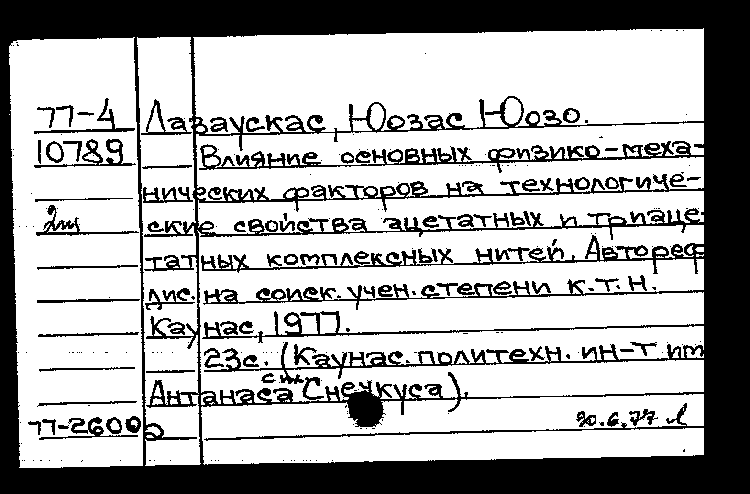 77-4 Лазаускас, Юозас Юозо.
10789 Влияние основных физико-меха-
нических факторов на технологиче-
2ш ские свойства ацетатных и триаце-
татных комплексных нитей. Автореф
дис. на соиск. учен. степени к.т.н.
Каунас, 1977.
23с. (Каунас. политехн. ин-т им
Антанаса Снечкуса).
77-2600 20.6.77